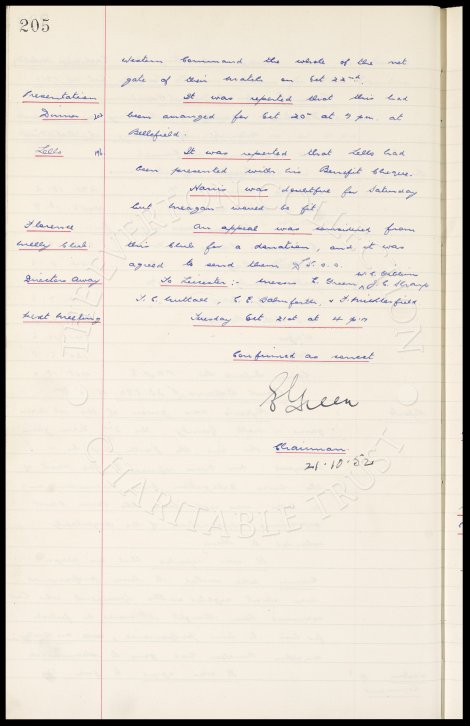 205
Western Command the whole of the net
gate of their match on Oct 22nd.
Presentation
Dinner 203
It was reported that this had
been arranged for Oct 20th at 7 pm. at
Bellefield.
Lello 196
It was reported that Lello had
been presented with his Benefit Cheque.
Harris was doubtful for Saturday
but Meagan would be fit.
Florence
Melly Club
An appeal was received from
this Club for a donation, and it was
agreed to send them
Directors Away
W. C. Gibbins
To Leicester :- Messrs E. Green, J. C. Sharp
T. C. Nuttall, C. E. Balmforth, & F. Micklesfield
Next Meeting
Tuesday Oct 21st at 4 pm
Confirmed as correct
E Green
Chairman.
21.10.52
THE EVERTON COLLECTION
CHARITABLE TRUST